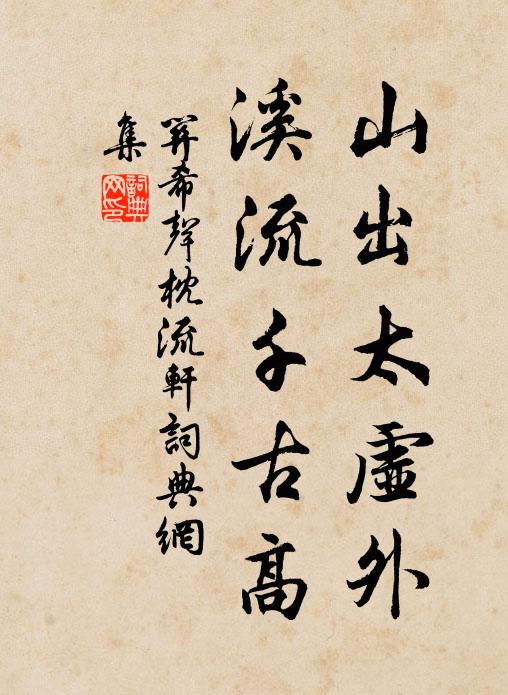 山出太虛外
溪流千古高
羿希聲枕流軒詞典網
集
詞典
网印